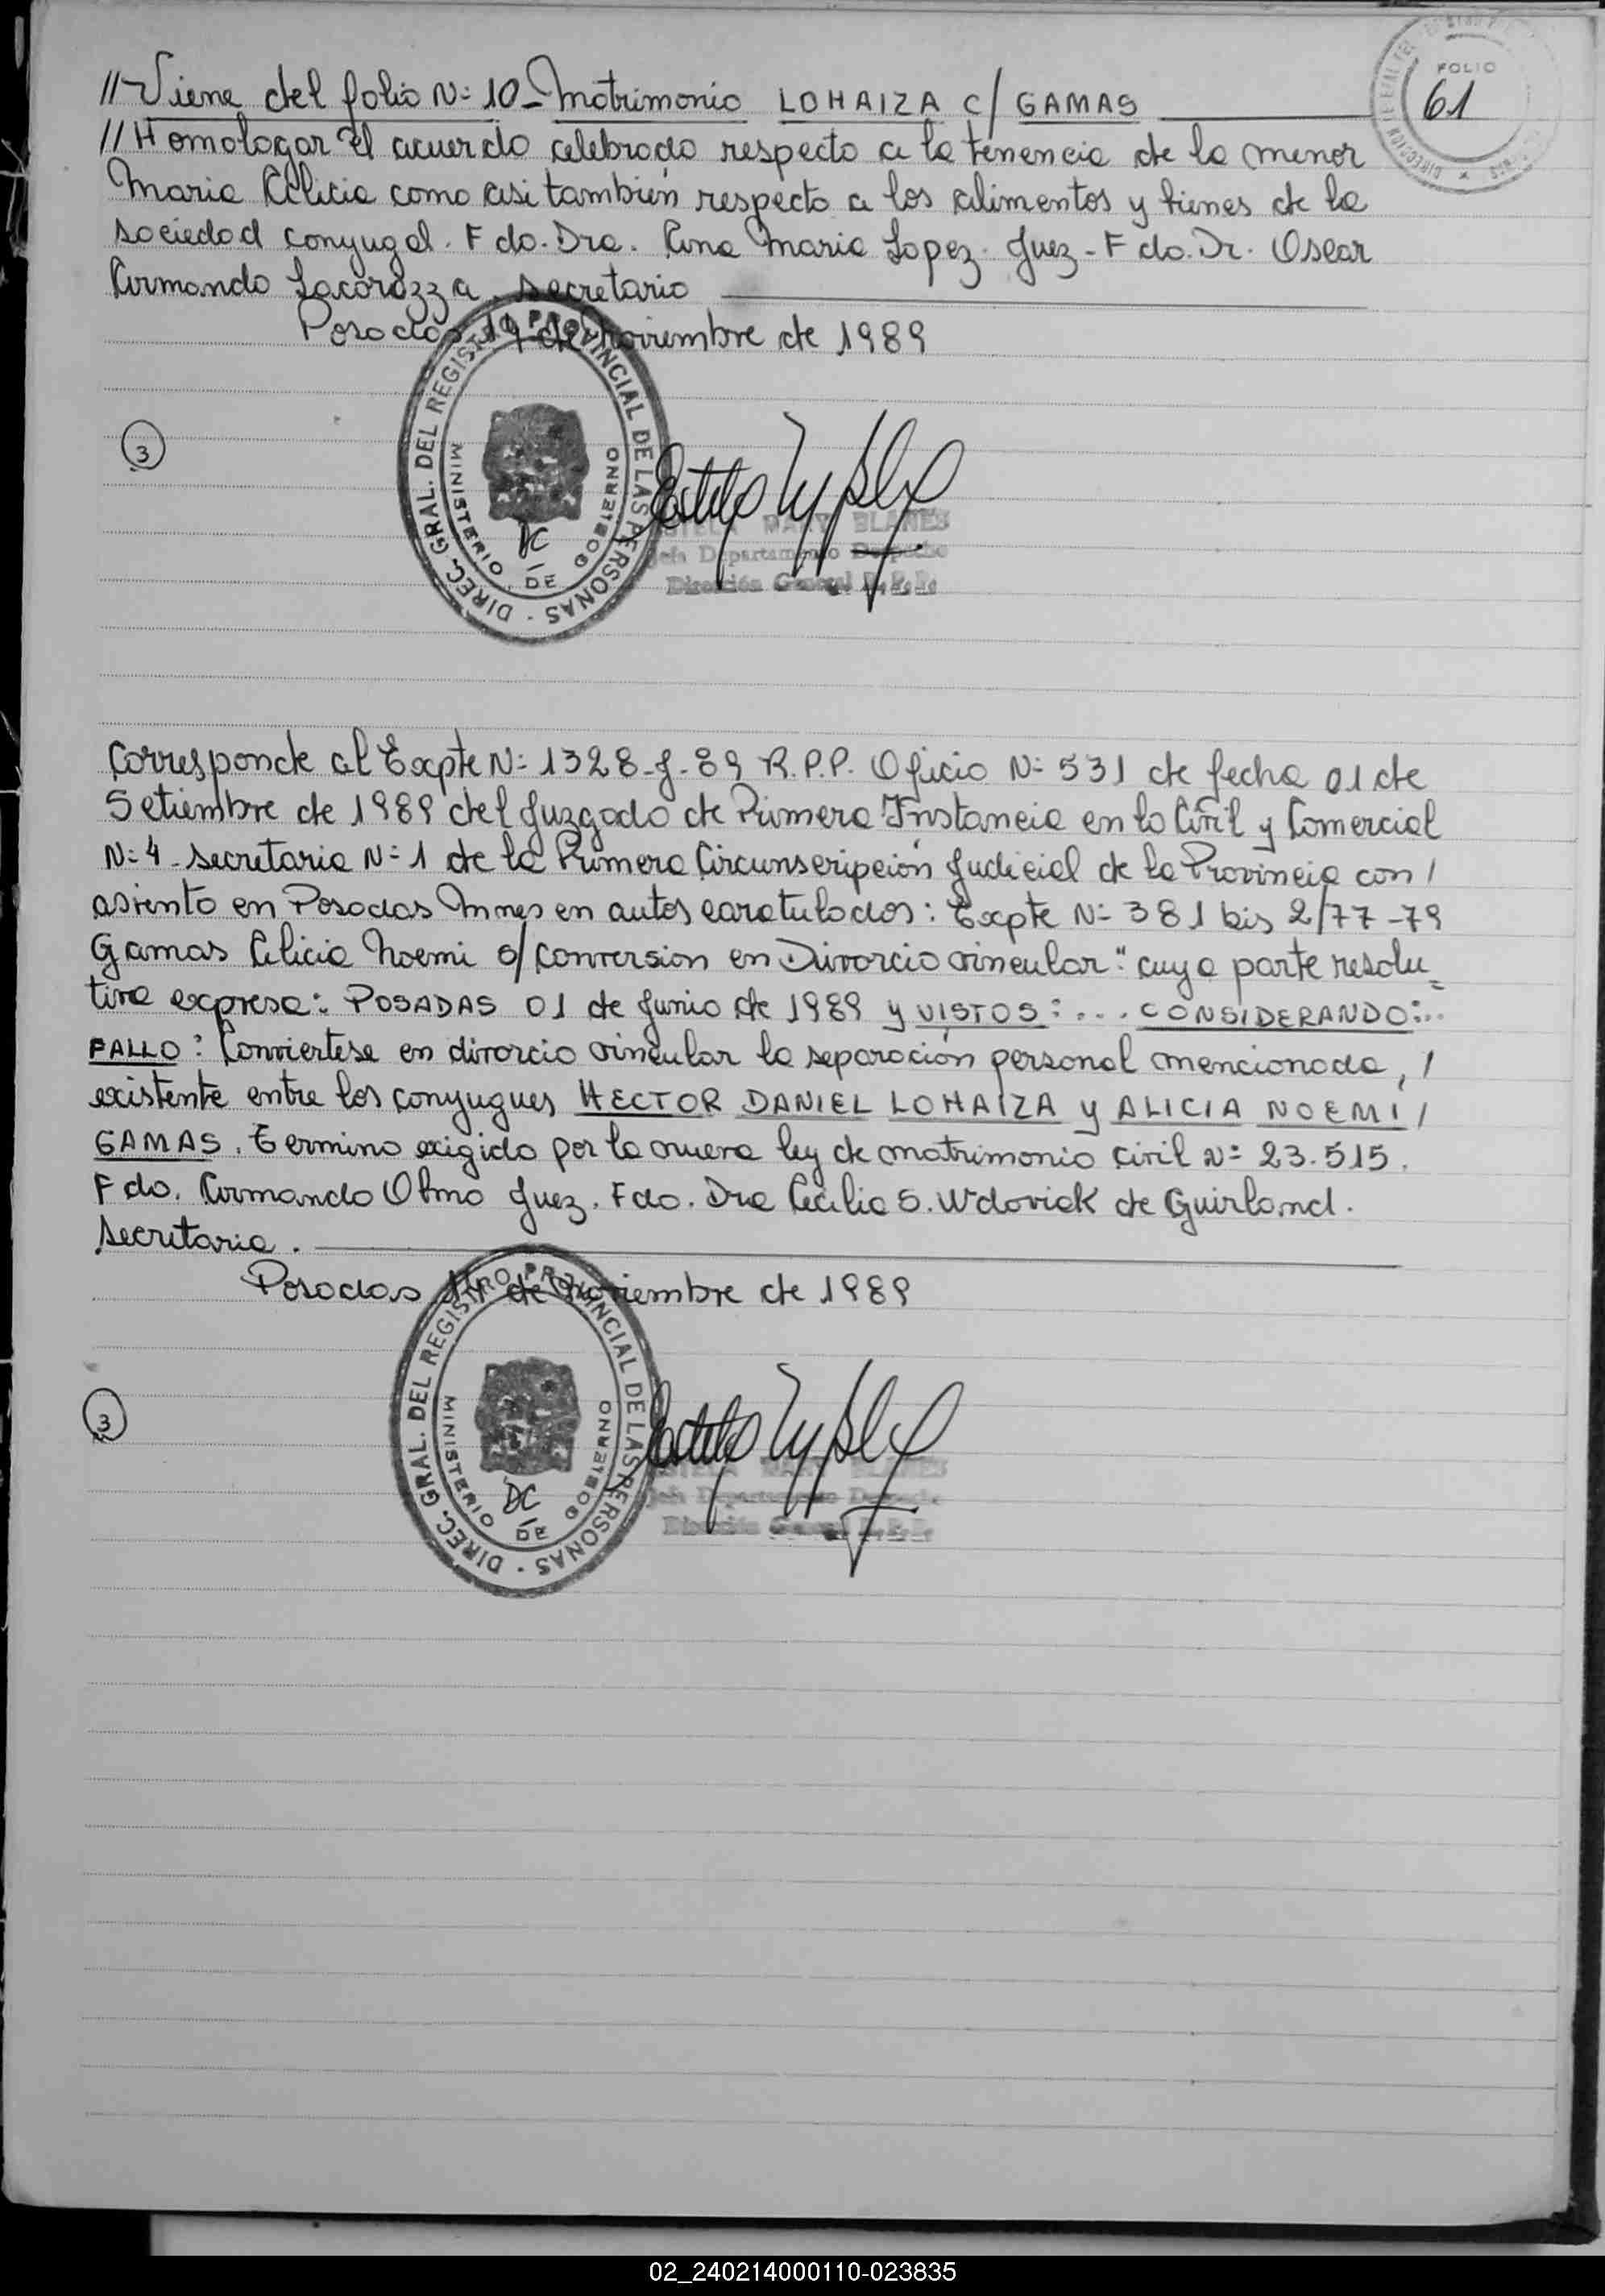 //Viene del folio Nº 10_Matrimonio LOHAIZA C/ GAMAS
FOLIO
61
//Homologar el acuerdo celebrado respecto a la tenencia de la menor
Maria Alicia como asi también respecto a los alimentos y bienes de la
sociedad conyugal. Fdo. Dra. Ana Maria Lopez. Juez - Fdo. Dr. Oscar
Armando Lacorazza. Secretario
Posadas, de Noviembre de 1989
DIREC. GRAL. DEL REGISTRO PROVINCIAL DE LAS PERSONAS -
MINISTERIO DE GOBIERNO
3
ESTELA MARY BLANES
Jefa Departamento Despacho
Dirección General R.P.P.
Corresponde al Expte Nº 1328-J-89 R.P.P. Oficio Nº 531 de fecha 01 de
Setiembre de 1989 del Juzgado de Primera Instancia en lo Civil y Comercial
Nº 4 - Secretaria Nº 1 de la Primera Circunscripción Judicial de la Provincia con /
asiento en Posadas Mnes en autos caratulados: Expte Nº 381 bis 2/77-79
Gamas Alicia Noemi s/ Conversion en Divorcio vincular" cuya parte resolu=
tiva expresa: POSADAS 01 de Junio de 1989 y VISTOS: ... CONSIDERANDO:..
FALLO: Conviertese en divorcio vincular la separación personal mencionada, /
existente entre los conyugues HECTOR DANIEL LOHAIZA y ALICIA NOEMI /
GAMAS. Termino exigido por la nueva ley de matrimonio civil Nº 23.515.
Fdo. Armando Olmo Juez. Fdo. Dra Cecilia S. Wdoviak de Guirland.
Secretaria.
Posadas, de Noviembre de 1989
DIREC. GRAL. DEL REGISTRO PROVINCIAL DE LAS PERSONAS -
MINISTERIO DE GOBIERNO
3
ESTELA MARY BLANES
Jefa Departamento Despacho
Dirección General R.P.P.
02_240214000110-023835